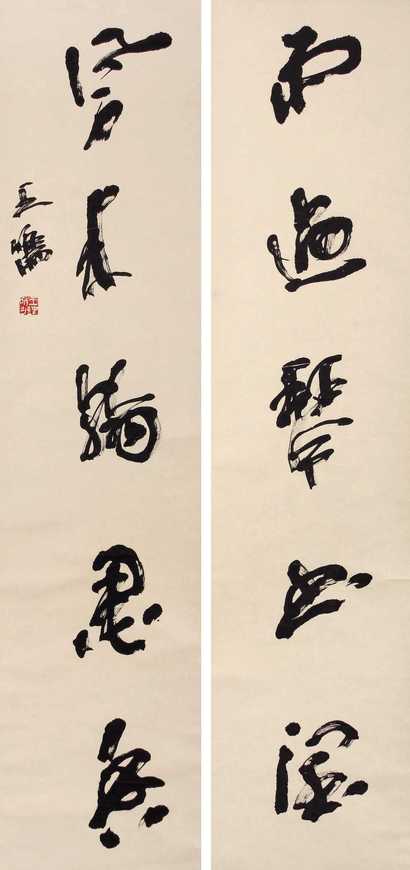 雨過琴書潤
風來翰墨香
王